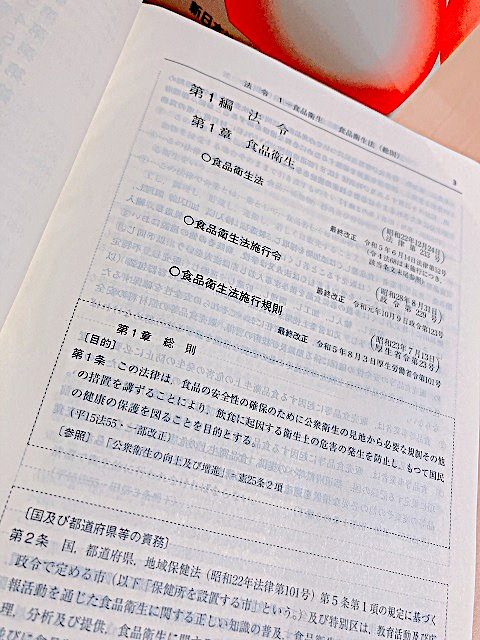 新日本
法 令 1 食品衛生 食品衛生法(総則)
3
第1編 法 令
第1章 食品衛生
○食品衛生法
(昭和22年12月24日
法 律 第 233 号)
最終改正 令和5年6月14日法律第52号
(令4法68は未施行につき、
該当条文末尾参照)
○食品衛生法施行令
(昭和28年8月31日
政 令 第 229 号)
最終改正 令和元年10月9日政令第123号
○食品衛生法施行規則
(昭和23年7月13日
厚生省令第23号)
最終改正 令和5年8月3日厚生労働省令第101号
第1章 総 則
〔目的〕
第1条 この法律は、食品の安全性の確保のために公衆衛生の見地から必要な規制その他
の措置を講ずることにより、飲食に起因する衛生上の危害の発生を防止し、もつて国民
の健康の保護を図ることを目的とする。
(平15法55・一部改正)
〔参照〕 「公衆衛生の向上及び増進」=憲25条2項
〔国及び都道府県等の責務〕
第2条 国、都道府県、地域保健法(昭和22年法律第101号)第5条第1項の規定に基づく
政令で定める市(以下「保健所を設置する市」という。)及び特別区は、教育活動及び広
報活動を通じた食品衛生に関する正しい知識の普及、食品衛生に関する
理、分析及び提供、食品衛生に関する